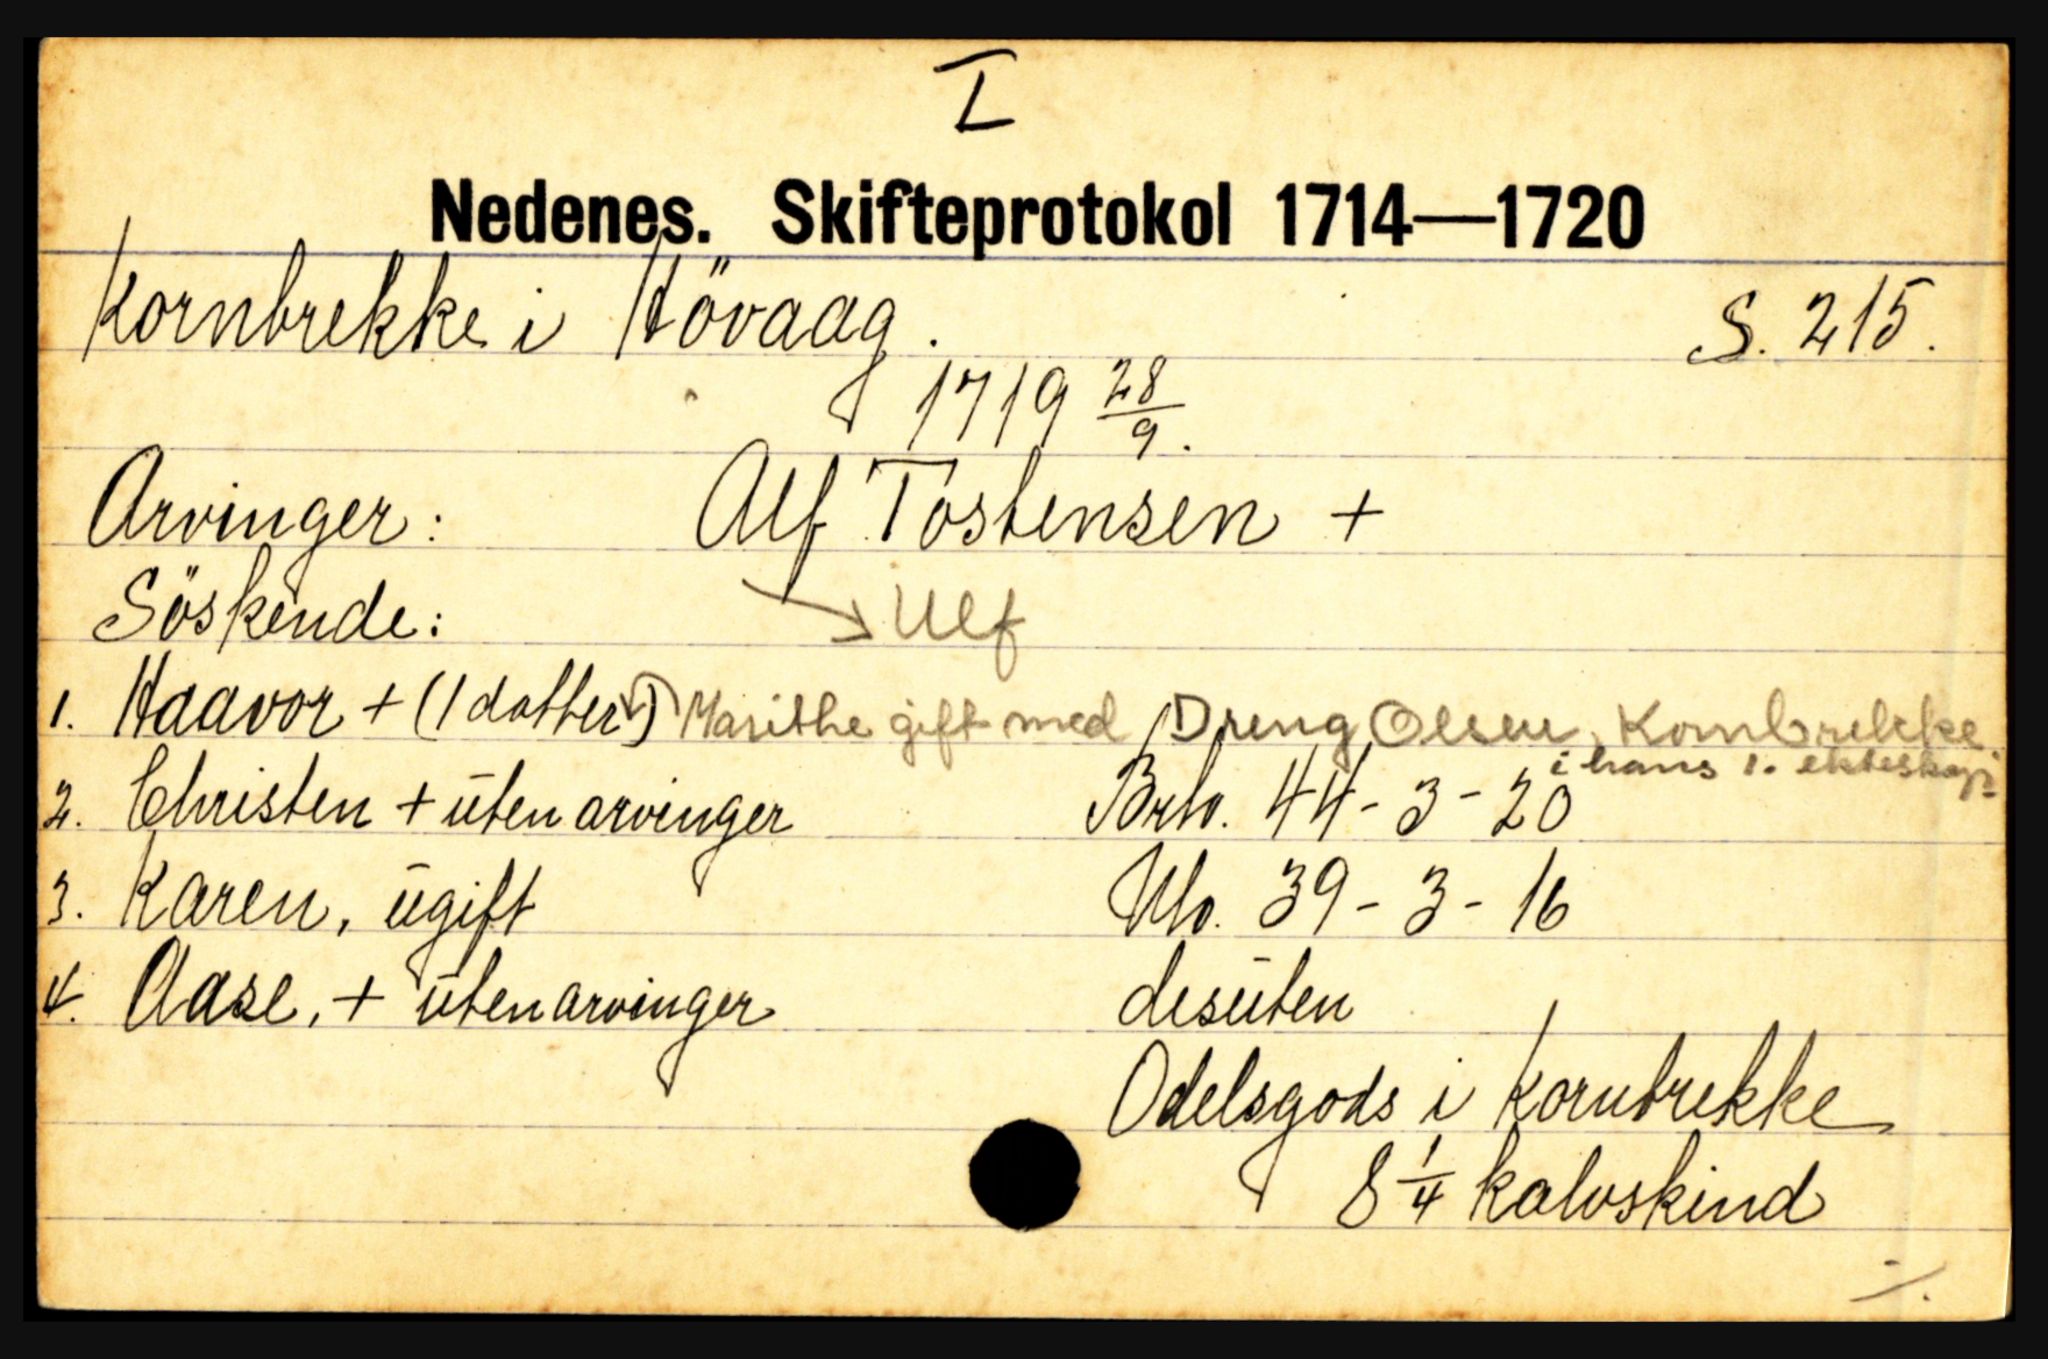 I
Nedenes. Skifteprotokol 1714—1720
Kornbrekke i Hövaag. S. 215.
1719 28/9.
Arvinger: Alf Tostensen +
Söskende: Ulf
1. Haavor + (1 datter) Marithe gift med Dreng Olsen, Kornbrekke
i hans 1. ekteskap
2. Christen + ūten arvinger Brto. 44 - 3 - 20
3. Karen, ūgift Nto. 39 - 3 - 16
4. Aase, + ūten arvinger desūten
Odelsgods i Kornbrekke
8 1/4 kalvskind